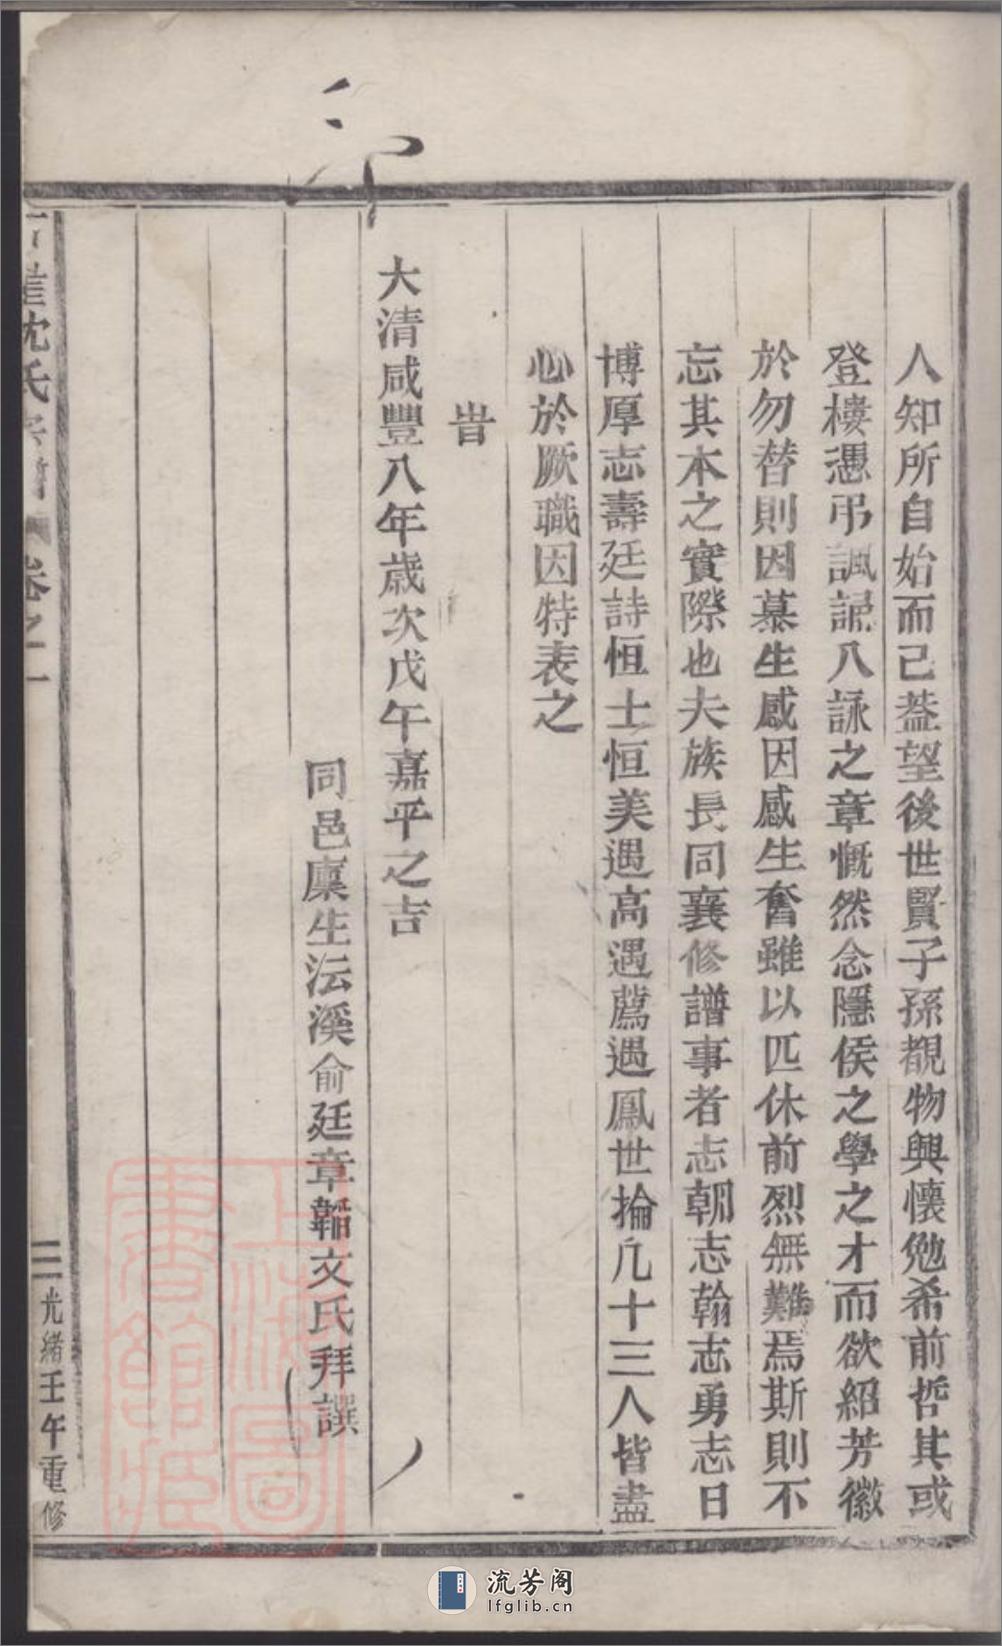 人知所自始而已葢望後世賢子孫覩物興懷勉希前哲其或
登樓憑弔諷詠八詠之章慨然念隱侯之學之才而欲紹芳徽
於勿替則因慕生感因感生奮雖以匹休前烈無難焉斯則不
忘其本之實際也夫族長同襄修譜事者志朝志翰志勇志日
博厚志壽廷詩恒士恒美遇高遇薦遇鳳世掄凡十三人皆盡
心於厥職因特表之
旹
大清咸豐八年歲次戊午嘉平之吉
同邑廩生沄溪俞廷章韜文氏拜譔
沈氏宗譜 卷之一
三 光緒壬午重修
上海圖書館藏
流芳阁
lfglib.cn